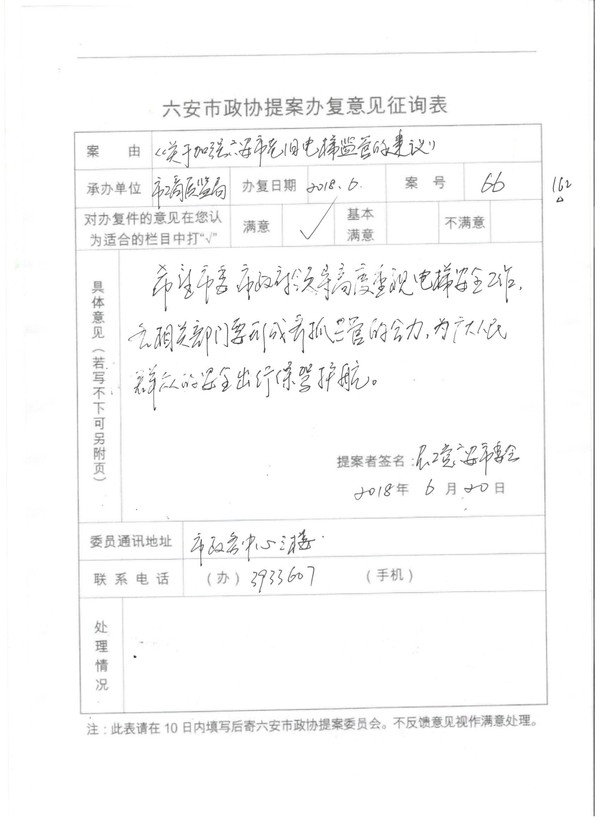 六安市政协提案办复意见征询表
案 由 《关于加强六安市老旧电梯监管的建议》
承办单位 市工商质监局 办复日期 2018.6. 案 号 66 162
对办复件的意见在您认为适合的栏目中打"√" 满意 √ 基本满意 不满意
具体意见（若写不下可另附页）
希望市委市政府领导高度重视电梯安全工作，
各相关部门要形成齐抓共管的合力，为广大人民
群众的安全出行保驾护航。
提案者签名：农工党六安市委会
2018年 6 月 20 日
委员通讯地址 市政务中心三楼
联系电话 （办）3933607 （手机）
处理情况
注：此表请在10日内填写后寄六安市政协提案委员会。不反馈意见视作满意处理。